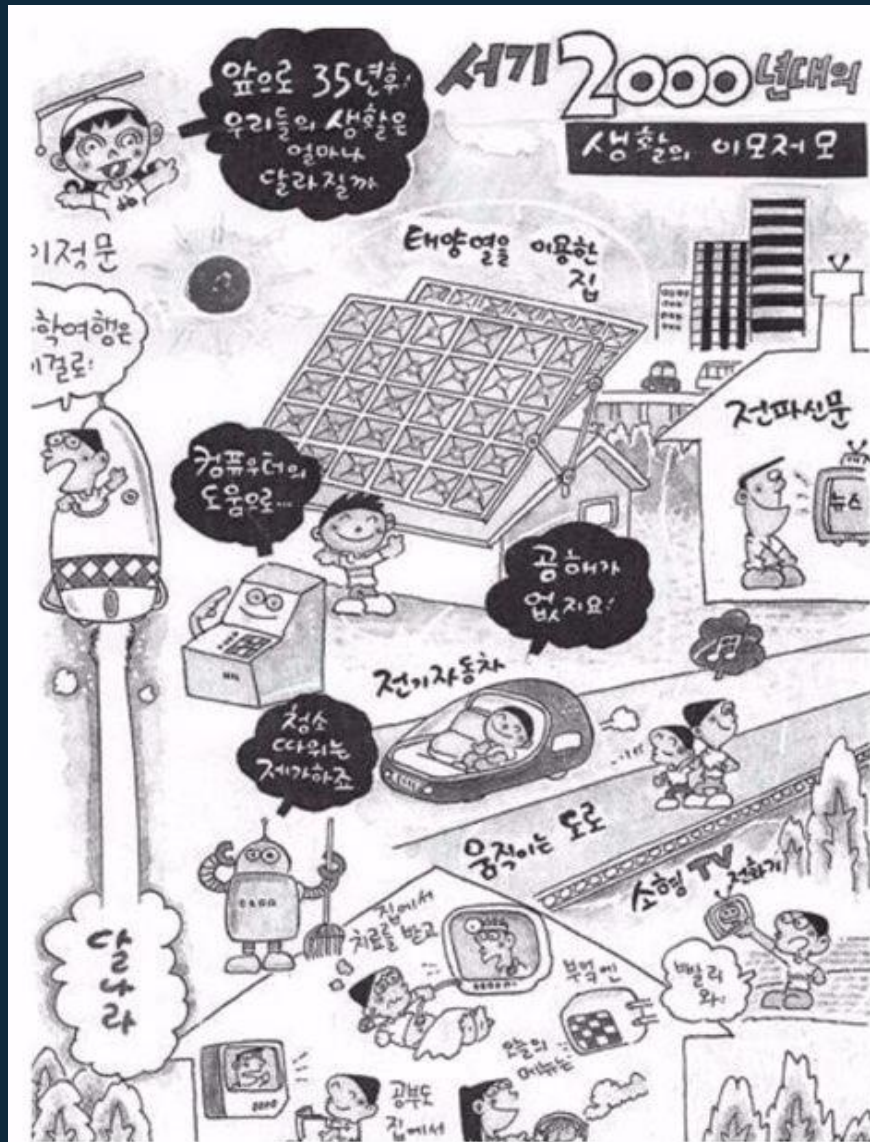 앞으로 35년후!
우리들의 생활은
얼마나
달라질까
서기 2000년대의
생활의 이모저모
이정문
학여행은
이걸로!
태양열을 이용한
집
전파신문
뉴스
컴퓨우터의
도움으로...
공해가
없지요!
전기자동차
청소
따위는
제가하죠
움직이는 도로
소형 TV 전화기
빨리
와!
달나라
집에서
치료를 받고
부엌엔
오늘의
메뉴는
공부도
집에서